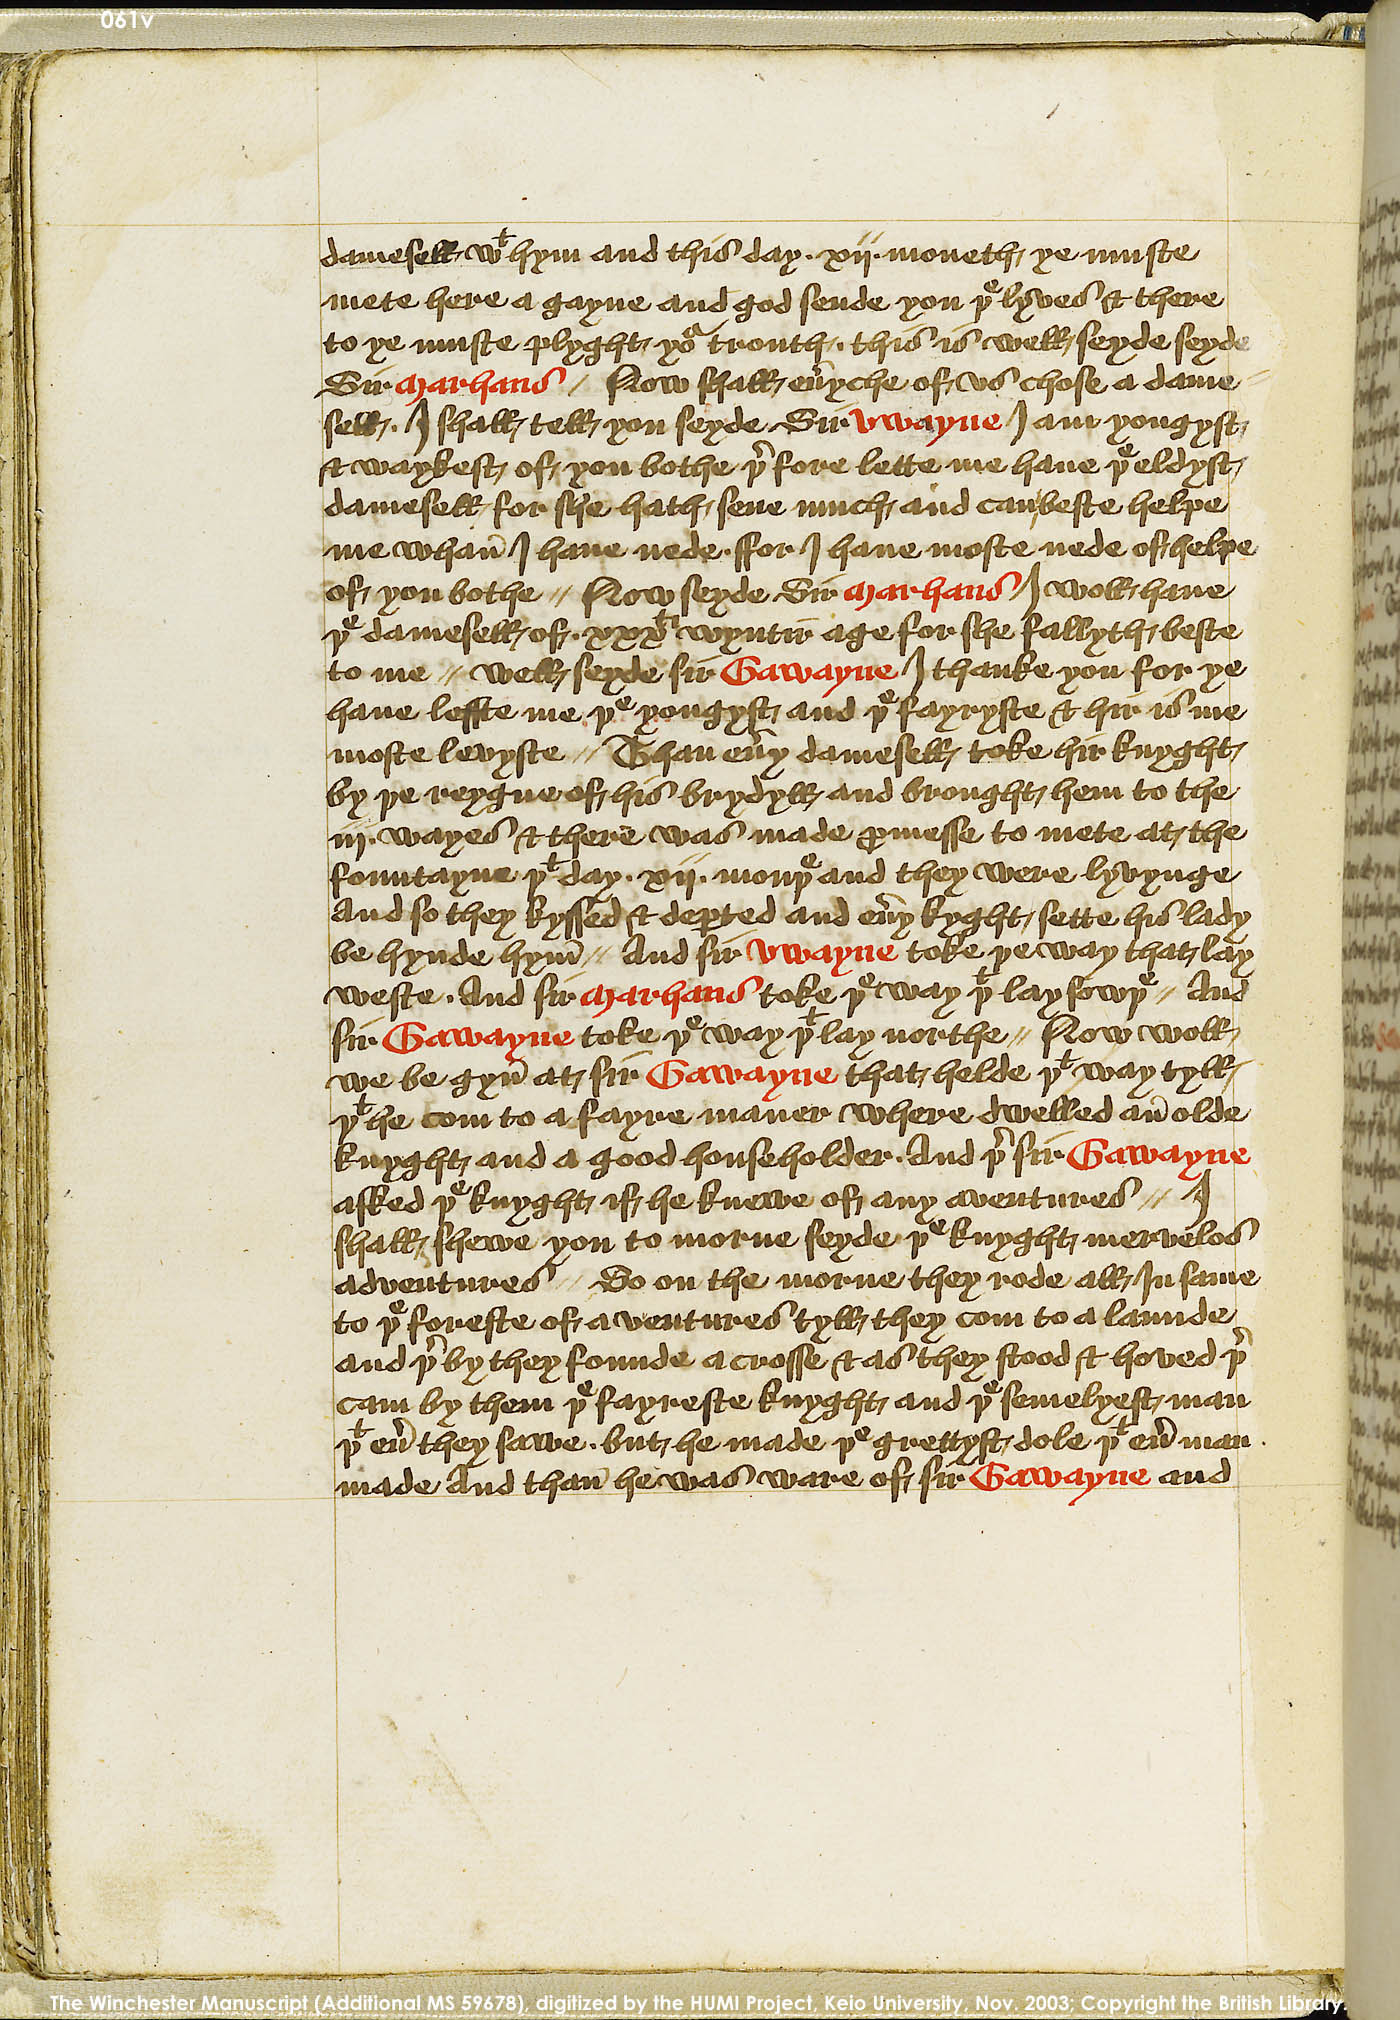 061v
damesell wᵗ hym and this day · xij · moneth ye muste
mete here a gayne and god sende you þᵉ lyves & there
to ye muste plyght yoʳ trouth · this is well seyde seyde
Sir Marhaus // Now shall eũyche of vs chose a dame
sell · I shall tell you seyde Sir Vwayne I am yongyst
& waykest of you bothe þʳ fore lette me haue þᵉ eldyst
damesell for she hath sene much and can beste helpe
me whan̄ I haue nede · ffor I haue moste nede of helpe
of you bothe // Now seyde Sir Marhaus I woll haue
þᵉ damesell of · xxxᵗⁱ wyntir age for she fallyth beste
to me // well seyde sir Gawayne I thanke you for ye
haue leffte me þᵉ yongyst and þᵉ fayryste & hir is me
moste levyste // Than eũy damesell toke hir knyght
by þe reygne of his brydyll and brought hem to the
iij · wayes & there was made ꝓmesse to mete at the
fountayne þᵗ day · xij · monþᵉ and they were lyvynge
And so they kyssed & deꝑted and eũy kyght sette his lady
be hynde hym̄ // And sir Vwayne toke þe way that lay
weste · And sir Marhaus toke þᵉ way þᵗ lay sowþᵉ // And
sir Gawayne toke þᵉ way þᵗ lay northe // Now woll
we be gyn̄ at sir Gawayne that helde þᵗ way tyll
þᵗ he com to a fayre maner where dwelled an̄ olde
knyght and a good householder · And þʳ sir Gawayne
asked þᵉ knyght if he knewe of any aventures // I
shall shewe you to morne seyde þᵉ knyght mervelos
adventures // So on the morne they rode all In same
to þᵉ foreste of aventures tyll they com to a launde
and þʳ by they founde a crosse & as they stood & hoved þʳ
cam by them þᵉ fayreste knyght and þᵉ semelyest man
þᵗ eũ they sawe · but he made þᵉ grettyst dole þᵗ eũ man
made And than̄ he was ware of sir Gawayne and
The Winchester Manuscript (Additional MS 59678), digitized by the HUMI Project, Keio University, Nov. 2003; Copyright the British Library.